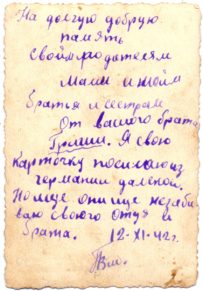 На долгую добрую
память
своим родителям
Маме и моим
братья и сестрам
От вашого брата
Гриши. Я свою
карточку посилаю из
германии далекой.
Но ище они ще незаби
ваю своого отця и
брата. 12-XI-42г.